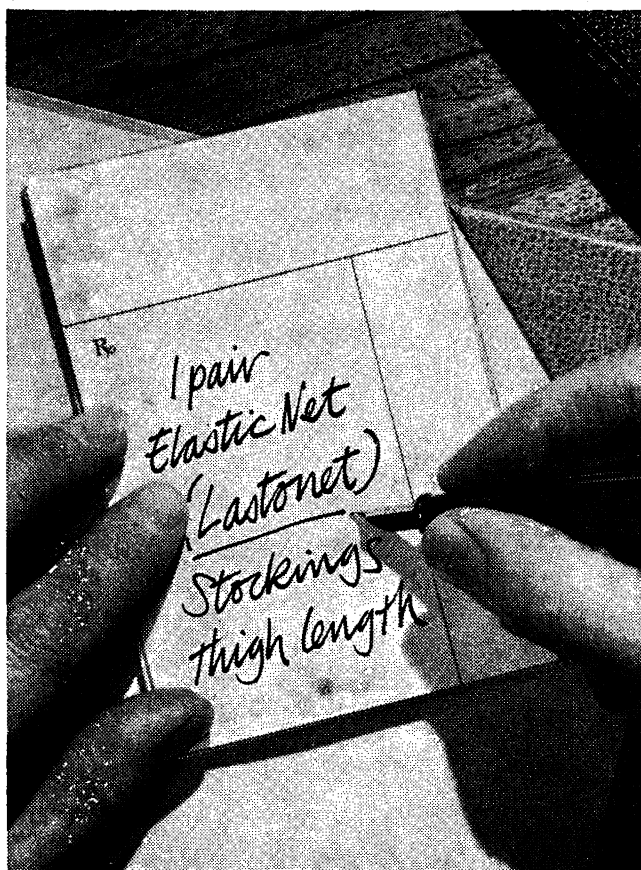 Rp
1 pair
Elastic Net
(Lastonet)
Stockings
thigh length